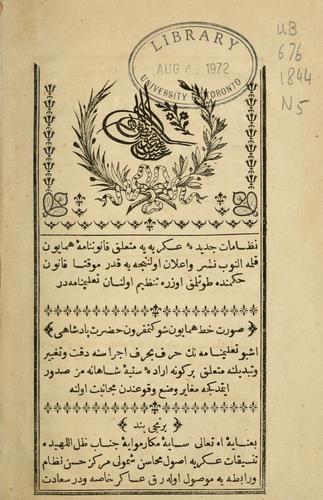 LIBRARY
AUG 1972
UNIVERSITY OF TORONTO
UB
676
1844
N5
نظامات جدیدهٔ عسکریه یه متعلق قانوننامهٔ همایون
نشر واعلان اولنیجه یه قدر موقتا قانون
حکمنده طوتلق اوزره تنظیم اولنان تعلیمنامه در
صورت خط همایون شوکتمقرون حضرت پادشاهی
اشبو تعلیمنامه نك حرف بحرف اجراسنه دقت وتغییر
وتبدیلنه متعلق برکونه ارادهٔ سنیهٔ شاهانه م صدور
ایتمدکجه مغایر وضع وقوعندن مجانبت اولنه
برنجی بند
بعنایة الله تعالی سایهٔ مکارموایهٔ جناب ظل اللهیده
تنسیقات عسکریه اصول محاسن شمولی مرکز حسن نظام
ورابطه یه موصول اوله رق عساکر خاصه ودرسعادت